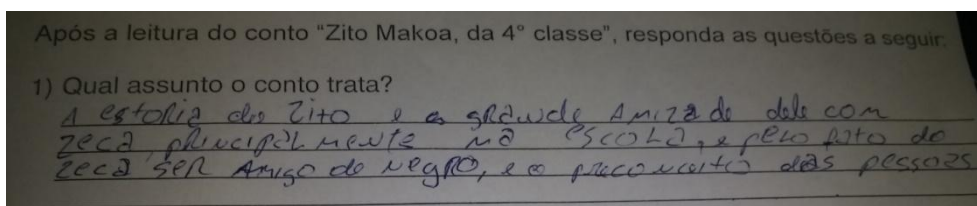 Após a leitura do conto “Zito Makoa, da 4° classe”, responda as questões a seguir:
1) Qual assunto o conto trata?
A estoria do Zito e a grande Amizade dele com
zeca, principalmente na escola, e pelo fato do
zeca ser Amigo do negro, e o preconceito das pessoas